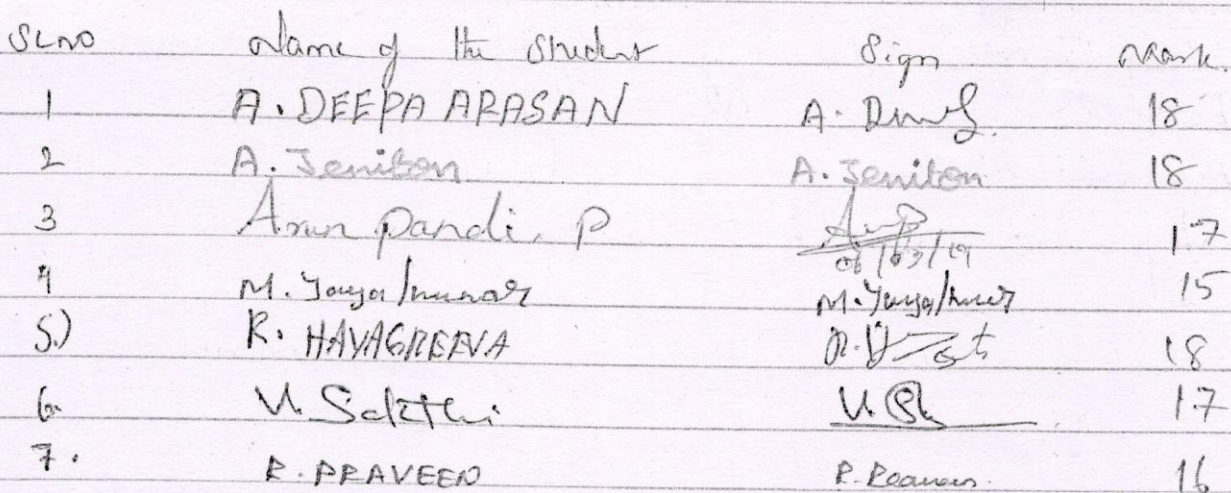 SLNO Name of the Student Sign Mark.
1 A. DEEPA ARASAN A. 18
2 A. Jeniton A. Jeniton 18
3 Arun pandi. P 06/03/19 17
4 M. Jayakumar M. Jayakumar 15
5.) R. HAYAGREEVA R. 18
6. V. Sakthi V. 17
7. R. PRAVEEN R. Praveen. 16